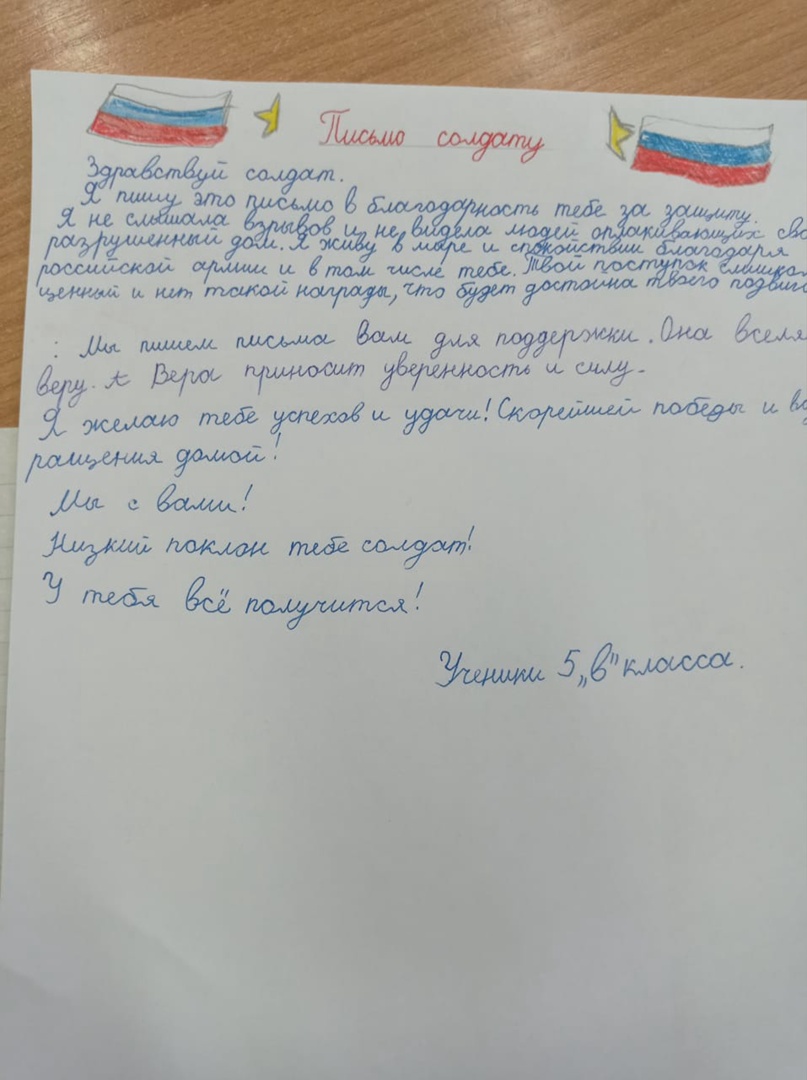 Письмо солдату
Здравствуй солдат.
Я пишу это письмо в благодарность тебе за защиту.
Я не слышала взрывов и не видела людей оплакивающих сво
разрушенный дом. Я живу в мире и спокойствии благодаря
российской армии и в том числе тебе. Твой поступок слишком
ценный и нет такой награды, что будет достойна твоего подвига
: Мы пишем письма Вам для поддержки. Она вселя
веру. А Вера приносит уверенность и силу.
Я желаю тебе успехов и удачи! Скорейшей победы и воз
ращения домой!
Мы с вами!
Низкий поклон тебе солдат!
У тебя всё получится!
Ученики 5 „в" класса.